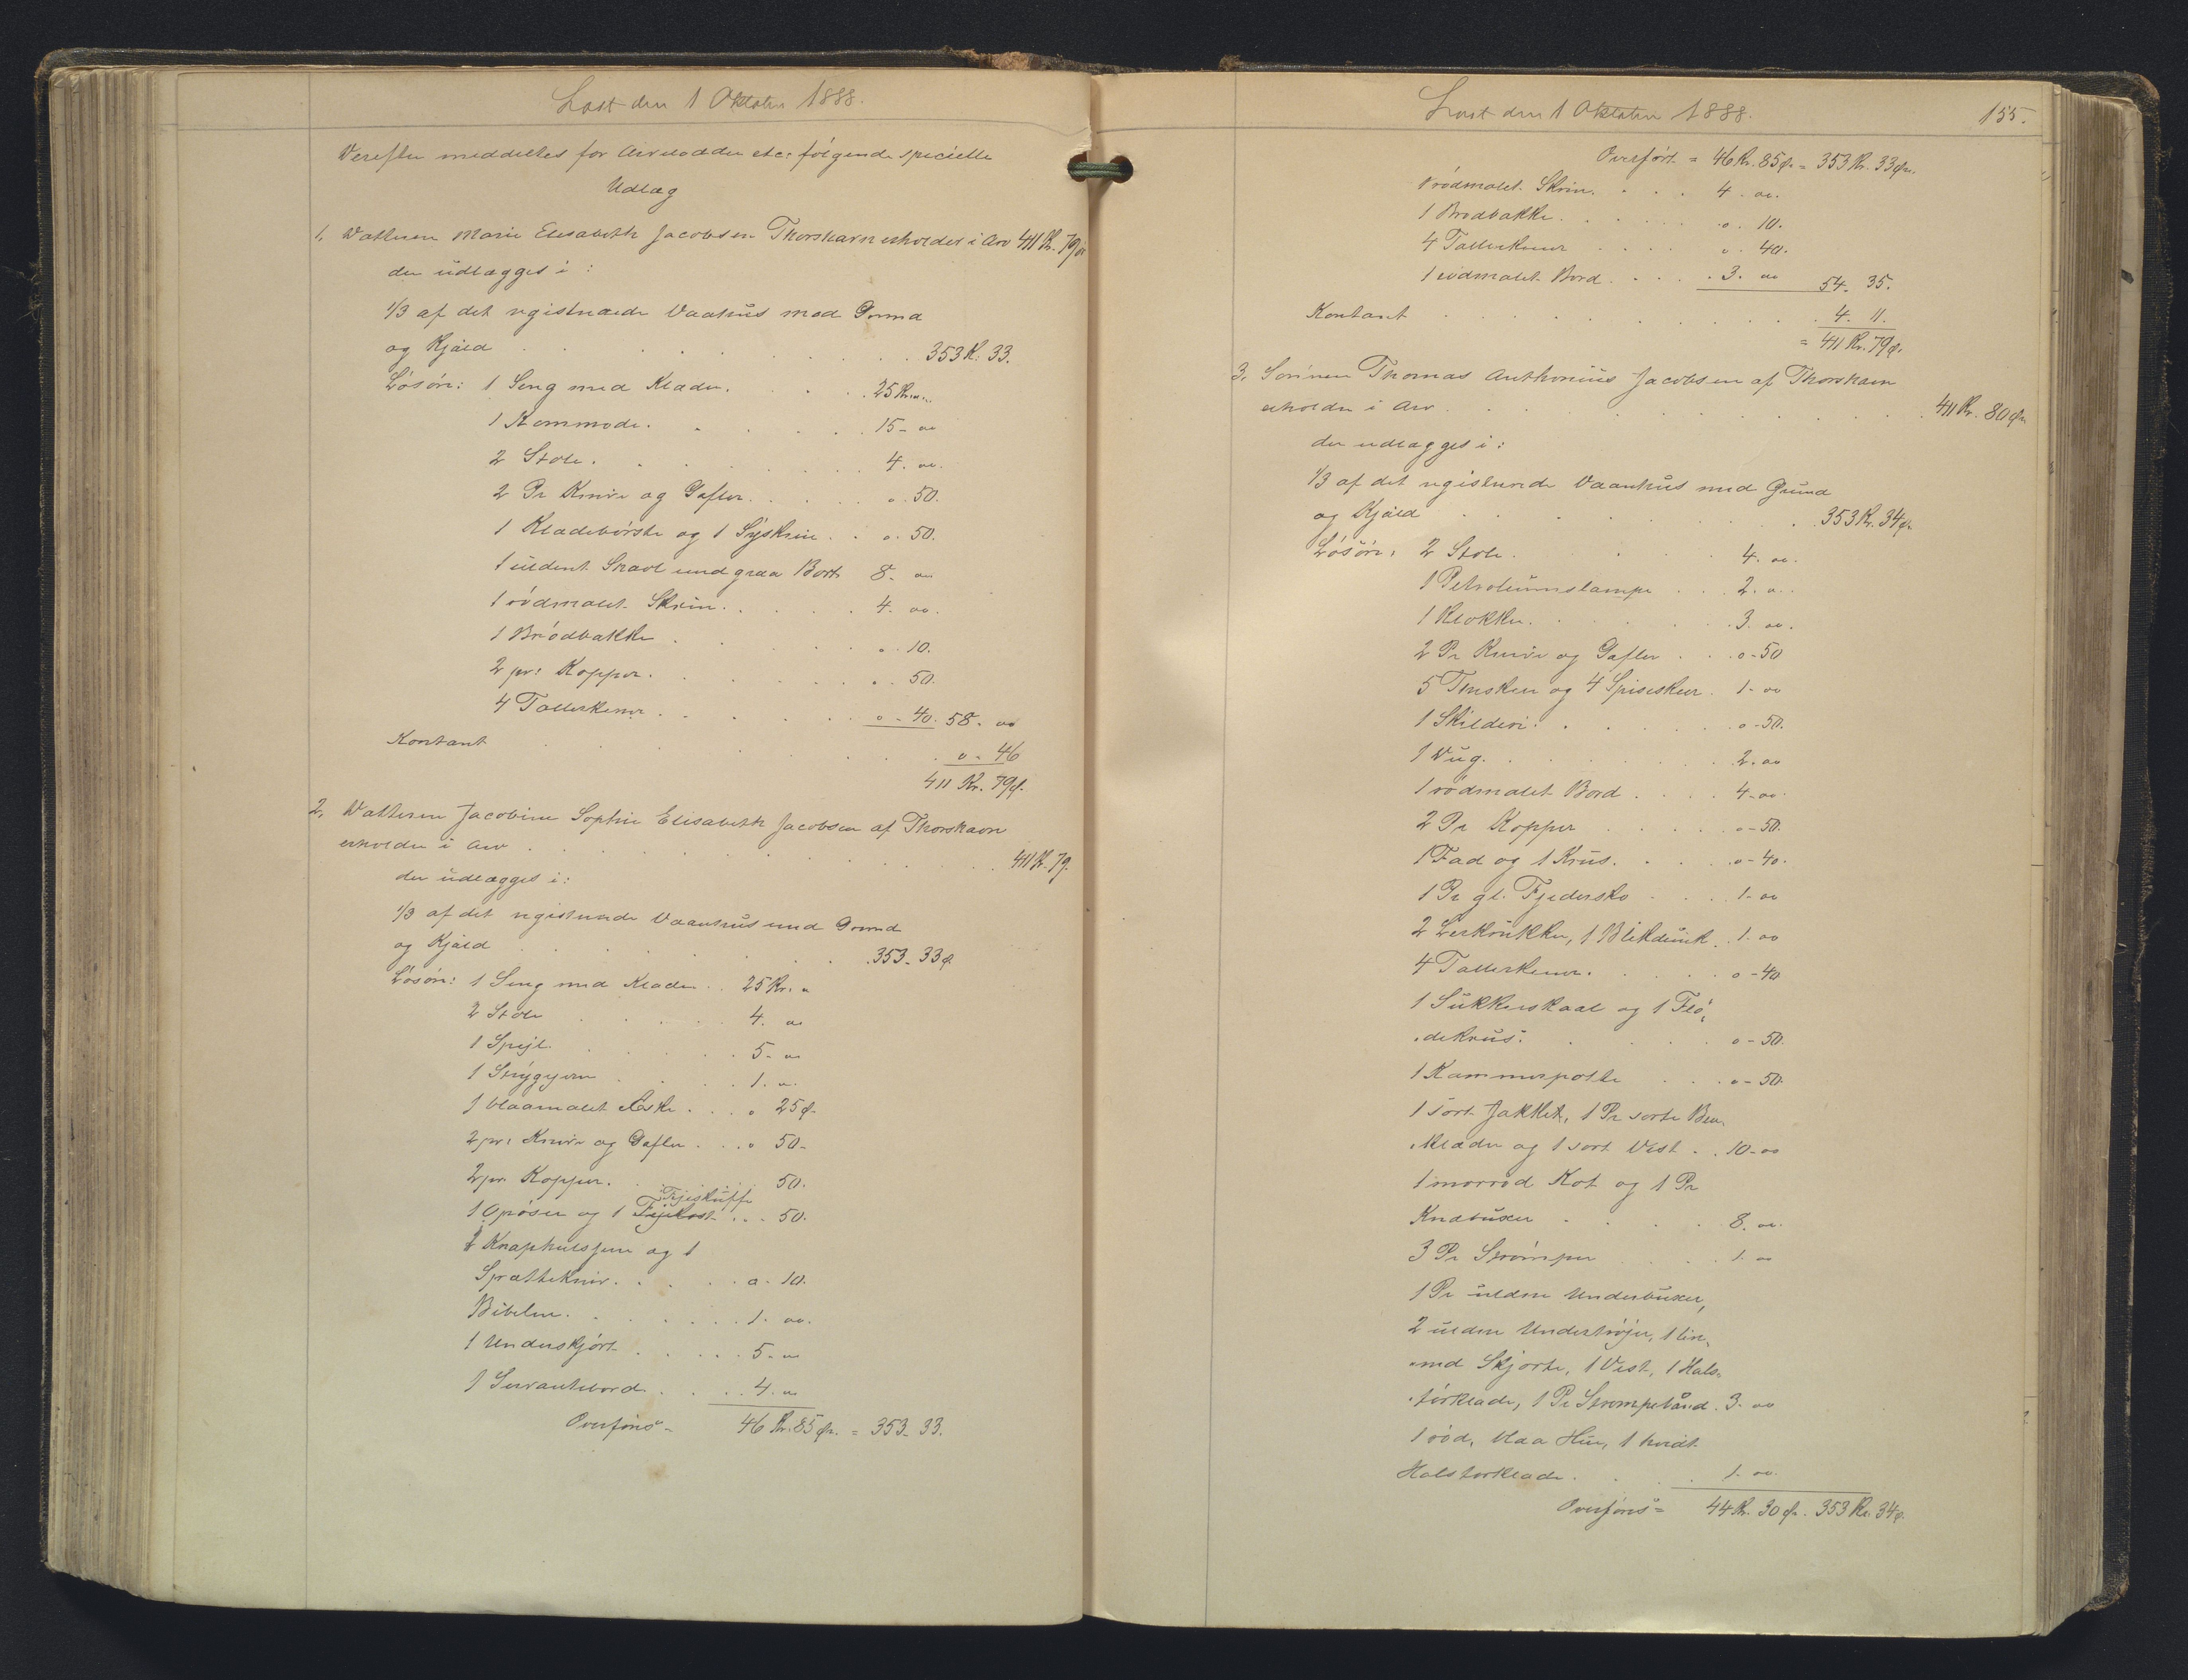 Læst den 1 Oktober 1888.
Derefter meddeltes for Arvelodder etc: følgende specielle
Udlæg
1, Datteren Marie Elisabeth Jacobsen Thorshavn erholder i Arv 411 Kr. 79 ø
der udlægges i:
1/3 af det registrerede Vaanhus med Grund
og Kjæld . . . 353 K. 33.
Løsøre: 1 Seng med Klæder. . . 25 Kr. "
1 Kommode. . . 15 - oo
2 Stole. . . 4. oo.
2 Pr Knive og Gafler. . . o. 50.
1 Klædebørste og 1 Syskrin . . o. 50.
1 uldent Shavl med graa Bort 8. oo
1 rødmalet Skrin. . . 4. oo.
1 Brødbakke . . . o. 10.
2 pr: Kopper. . . o. 50.
4 Tallerkener. . . o - 40. 58. oo
Kontant . . . o. 46
411 Kr. 79 ø.
2, Datteren Jacobine Sophie Elisabeth Jacobsen af Thorshavn
erholder i Arv . . . 411 K. 79.
der udlægges i:
1/3 af det registrerede Vaanhus med Grund
og Kjæld . . . 353. 33 ø
Løsøre: 1 Seng med Klæder . . 25 Kr. "
2 Stole . . . 4. oo
1 Spejl . . . 5. oo
1 Strygejern . . . 1. oo.
1 blaamalet Æske . . . o 25 ø.
2 pr: Knive og Gafler . . . o 50-
2 pr. Kopper. . . 50.
Fejeskuffe
1 Opøser og 1 Fejekost . . . 50.
1 Knaphulsjern og 1
Sprættekniv. . . o. 10.
Bibelen. . . 1. oo.
1 Underskjørt . . . 5. oo
1 Servantebord. . . 4. oo
Overføres - 46 Kr. 85 ør. = 353. 33.
Læst den 1 Oktober 1888.
155.
Overført = 46 Kr. 85 ø. = 353 Kr. 33 ør.
1 rødmalet Skrin. . . 4. oo.
1 Brødbakke. . . o. 10.
4 Tallerkener . . . o. 40.
1 rødmalet Bord. . . 3. oo 54. 35.
Kontant . . . 4. 11.
= 411 Kr. 79 ø.
3, Sønnen Thomas Anthonius Jacobsen af Thorshavn
erholder i Arv . . . 411 Kr. 80 ør.
der udlægges i:
1/3 af det registrerede Vaanhus med Grund
og Kjæld . . . 353 Kr. 34 ø.
Løsøre: 2 Stole. . . 4. oo.
1 Petroleumslampe . . . 2. o.
1 Klokke. . . 3. oo.
2 Pr Knive og Gafler . . . o-50
5 Theskeer og 4 Spiseskeer. 1- oo
1 Skilderi. . . o-50.
1 Dug. . . 2. oo
1 rødmalet Bord . . . 4-oo.
2 Pr Kopper . . . o-50.
1 Fad og 1 Krus. . . o-40.
1 Pr gl. Fjedersko . . . 1- oo
2 Lerkrukker, 1 Blikdunk. 1. oo
4 Tallerkener. . . o-40
1 Sukkerskaal og 1 Flø,
,dekrus. . . o-50.
1 Kammerpotte . . . o-50
1 sort Jakket, 1 Pr sorte Ben,
,klæder og 1 sort Vest . . 10-oo
1 morrød Kot og 1 Pr
Knæbuxer . . . 8. oo.
3 Pr Strømper . . . 1. oo
1 Pr uldne Underbuxer,
2 uldne Undertrøjer, 1 lin,
,ned Skjorte, 1 Vest, 1 Hals,
,tørklæde, 1 Pr Strømpebånd. 3. oo
1 rød, blaa Hue, 1 hvidt
Halstørklæde. . . 1. oo.
Overføres = 44 Kr. 30 ør. 353 Kr. 34 ø.